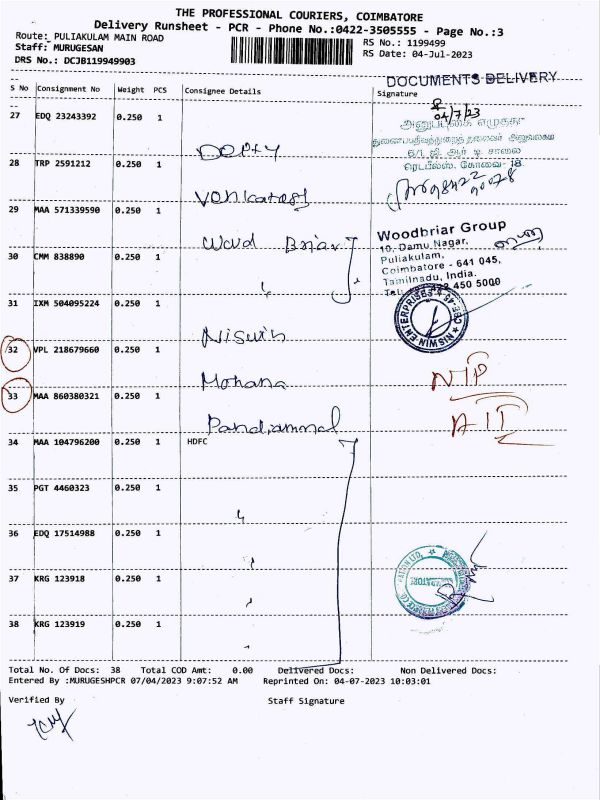 THE PROFESSIONAL COURIERS, COIMBATORE
Delivery Runsheet - PCR - Phone No.:0422-3505555 - Page No.:3
Route: PULIAKULAM MAIN ROAD
Staff: MURUGESAN
DRS No.: DCJB119949903
RS No.: 1199499
RS Date: 04-Jul-2023
DOCUMENTS DELIVERY
S No Consignment No Weight PCS Consignee Details Signature
27 EDQ 23243392 0.250 1
04/7/23
28 TRP 2591212 0.250 1
29 MAA 571339590 0.250 1
Woodbriar Group
10, Damu Nagar,
Puliakulam,
Coimbatore - 641 045,
Tamilnadu, India.
30 CMM 838890 0.250 1
450 5000
31 IXM 504095224 0.250 1
NISWIN ENTERPRISES
Niswin
32 VPL 218679660 0.250 1
Mohana
33 MAA 860380321 0.250 1
Pandiammal
34 MAA 104796200 0.250 1 HDFC
35 PGT 4460323 0.250 1
36 EDQ 17514988 0.250 1
37 KRG 123918 0.250 1
38 KRG 123919 0.250 1
Total No. Of Docs: 38 Total COD Amt: 0.00 Delivered Docs: Non Delivered Docs:
Entered By :MURUGESHPCR 07/04/2023 9:07:52 AM Reprinted On : 04-07-2023 10:03:01
Verified By Staff Signature